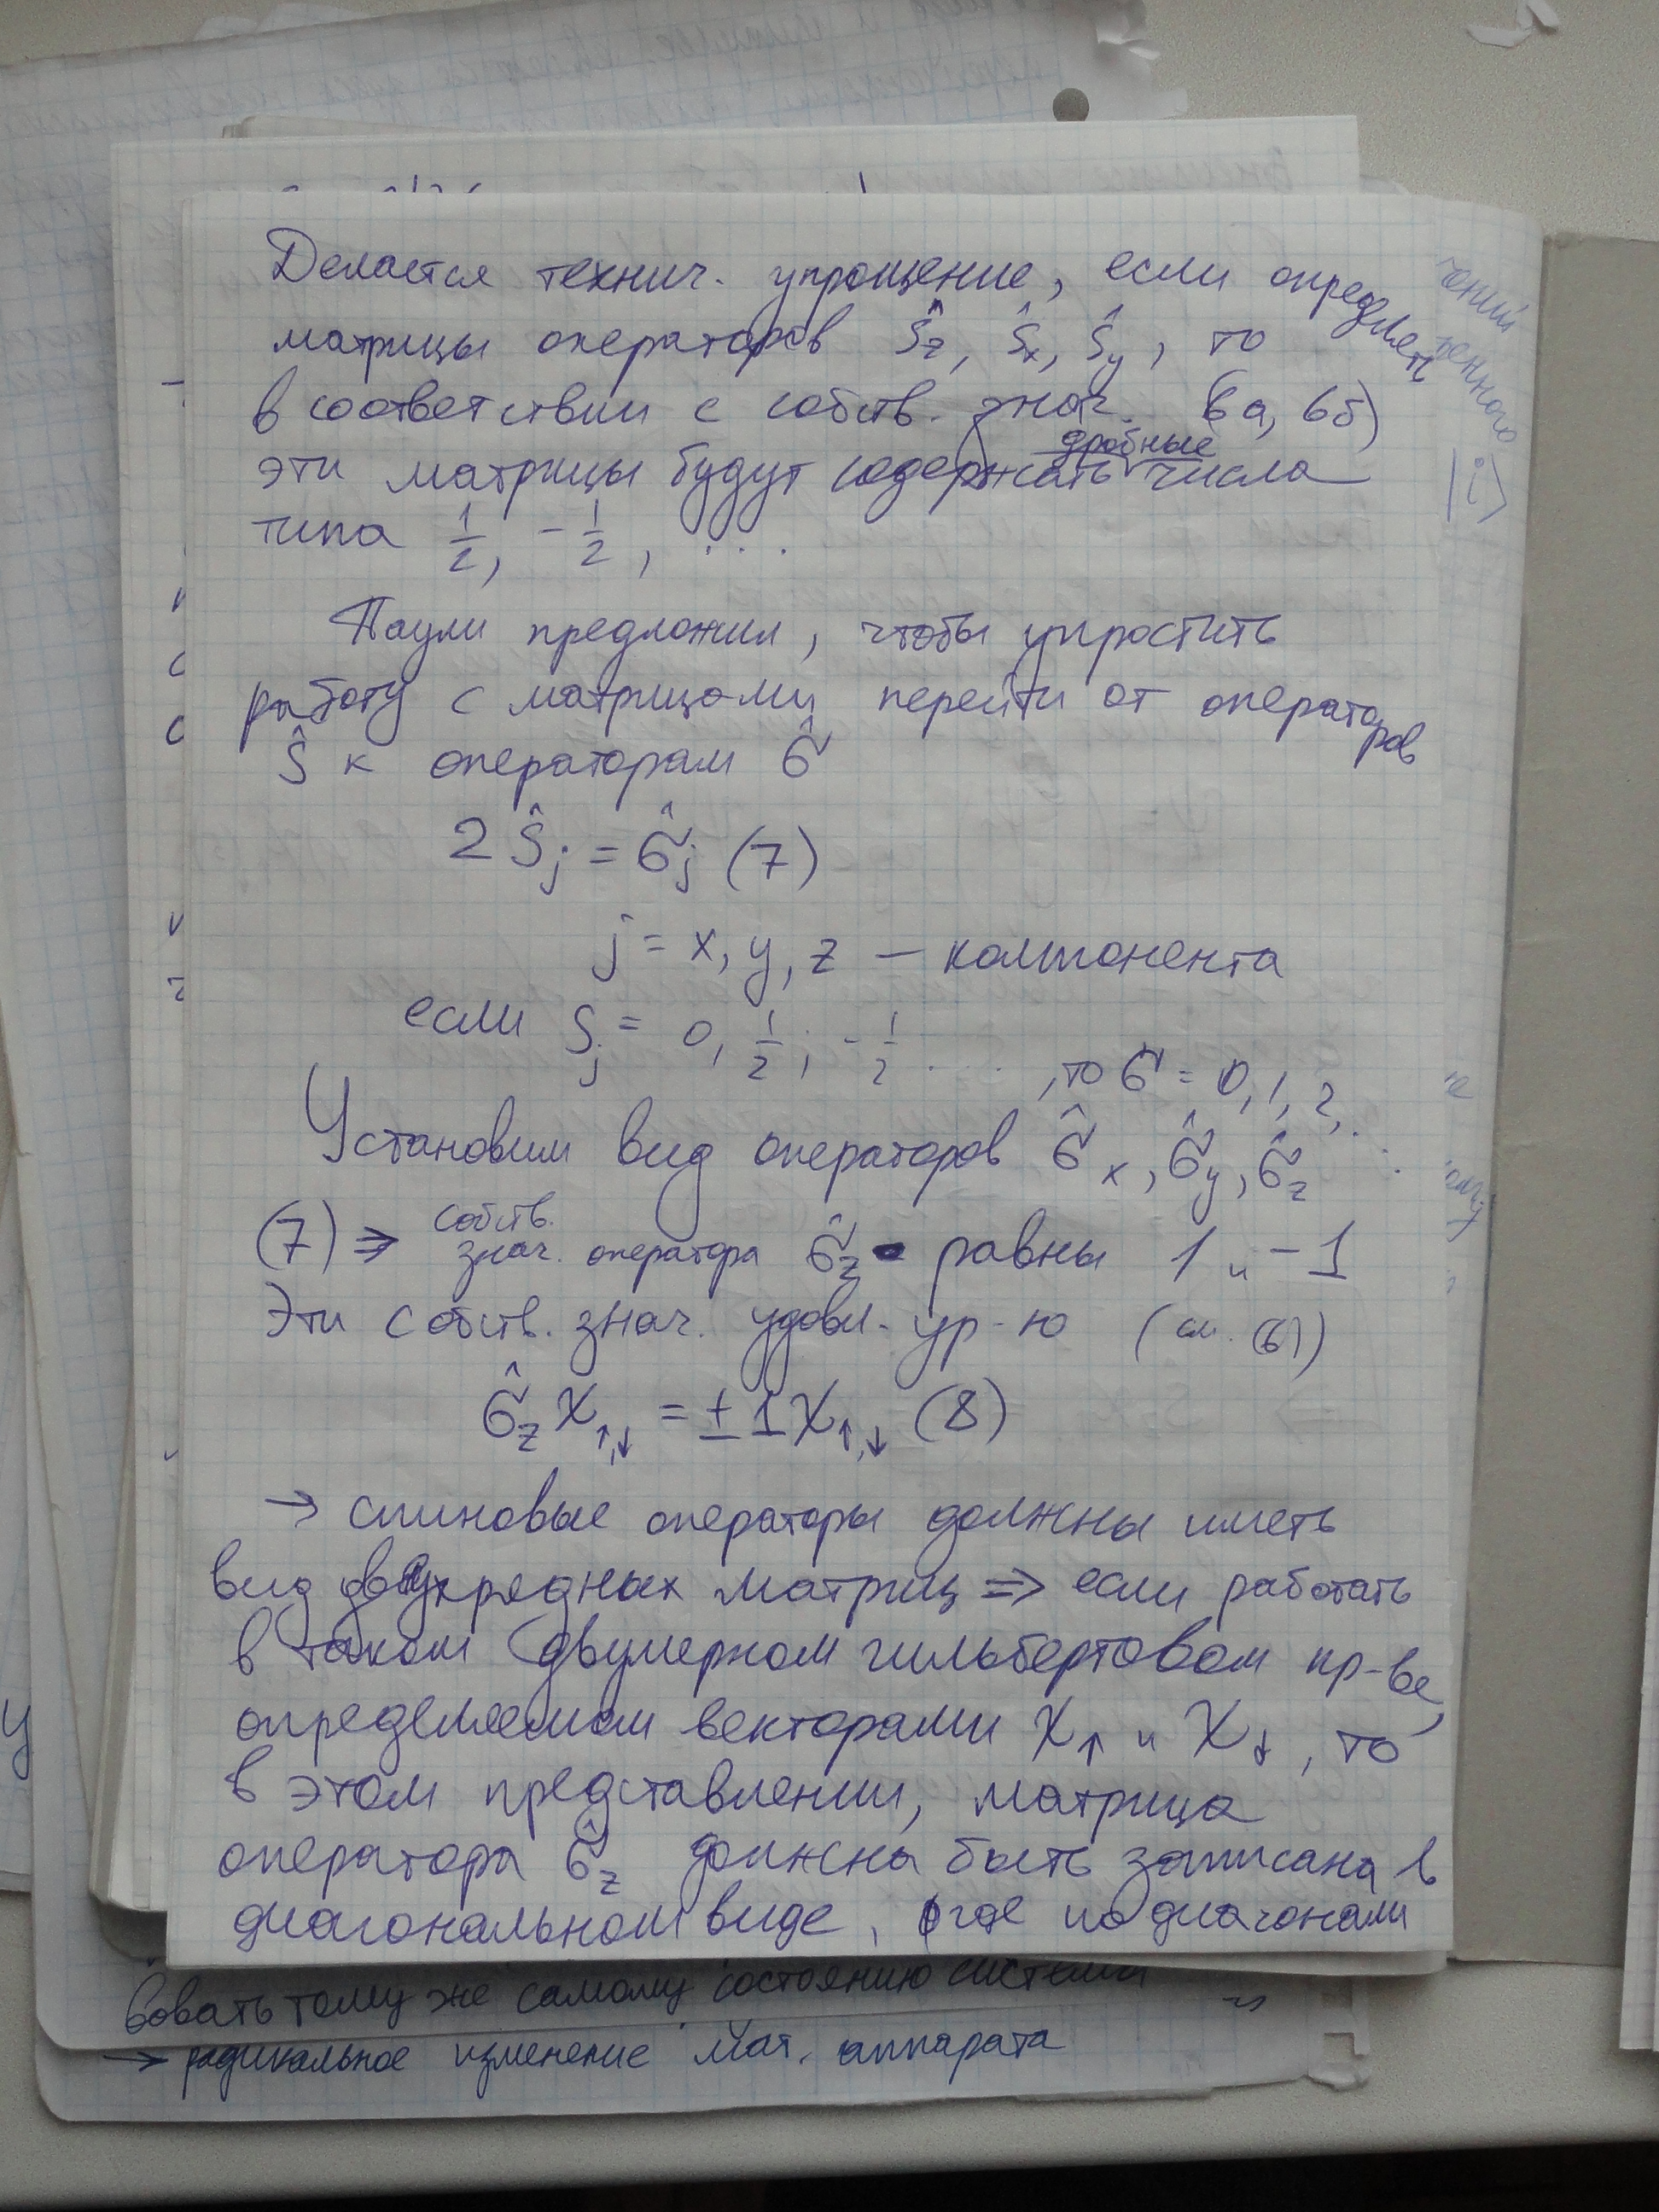 Делается технич. упрощение, если определить
матрицы операторов Ŝz, Ŝx, Ŝy, то
в соответствии с собств. знач. (6а, 6б)
эти матрицы будут содержать дробные числа
типа 1/2, -1/2, ...
Паули предложил, чтобы упростить
работу с матрицами перейти от операторов
Ŝ к операторам σ̂
2Ŝj = σ̂j (7)
j = x, y, z – компонента
если Sj = 0, 1/2, -1/2 ....., то σ = 0, 1, 2, ...
Установим вид операторов σ̂x, σ̂y, σ̂z
(7) ⇒ собств. знач. оператора σ̂z равны 1 и -1
Эти собств. знач. удовл. ур-ю (см. (6))
σ̂z χ↑,↓ = ±1 χ↑,↓ (8)
→ спиновые операторы должны иметь
вид двухрядных матриц ⇒ если работать
в таком двумерном гильбертовом пр-ве,
определяемом векторами χ↑ и χ↓, то
в этом представлении, матрица
оператора σ̂z должна быть записана в
диагональном виде, где по диагонали
вовать тому же самому состоянию системы
→ радикальное изменение мат. аппарата